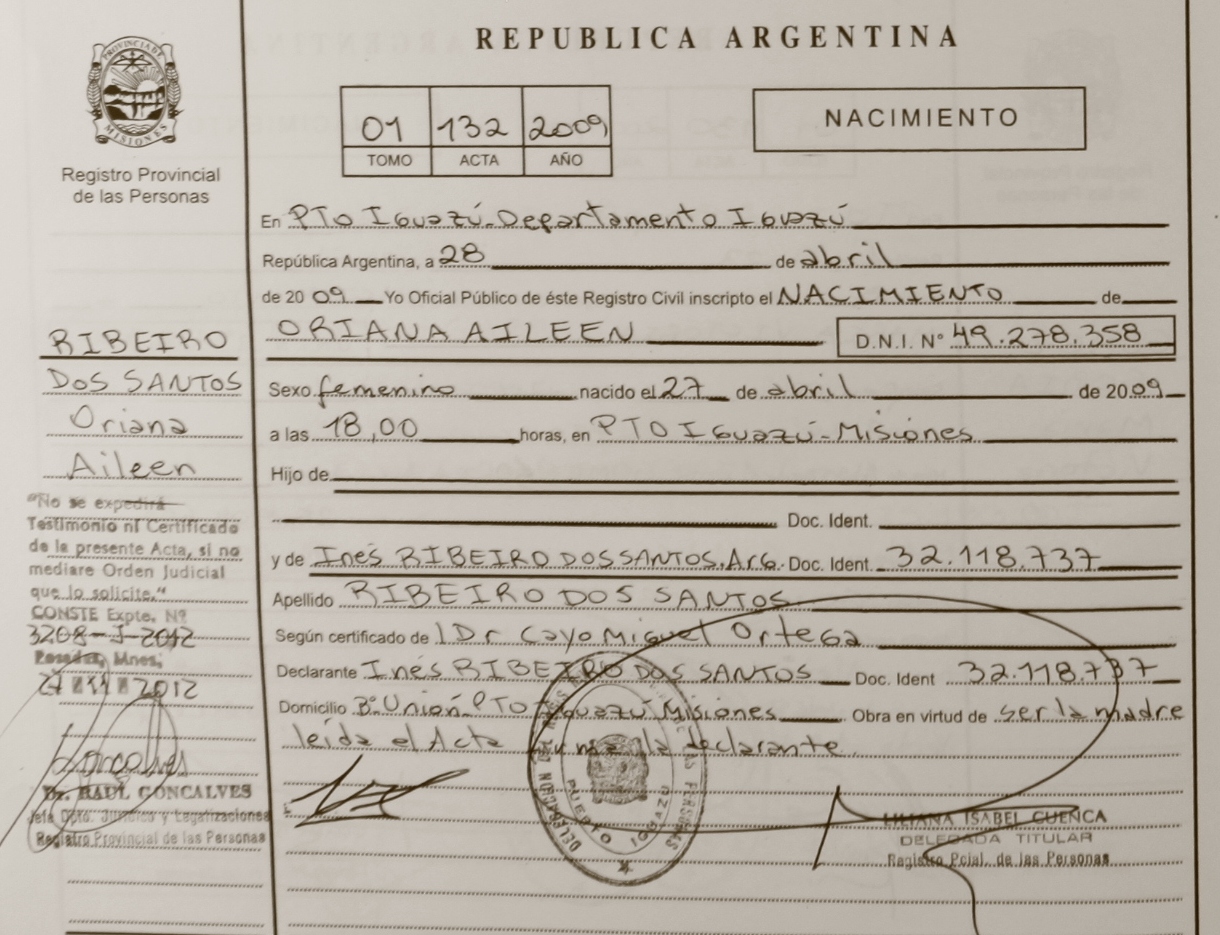 REPUBLICA ARGENTINA
PROVINCIA DE MISIONES
Registro Provincial
de las Personas
01 132 2009
TOMO ACTA AÑO
NACIMIENTO
En PTO Iguazú-Departamento Iguazú
República Argentina, a 28 de abril
de 20 09 Yo Oficial Público de éste Registro Civil inscripto el NACIMIENTO de
ORIANA AILEEN D.N.I. Nº 49.278.358
Sexo femenino nacido el 27 de abril de 2009
a las 18,00 horas, en PTO Iguazú-Misiones
Hijo de
Doc. Ident.
y de Inés RIBEIRO DOS SANTOS.Arg. Doc. Ident. 32.118.737
Apellido RIBEIRO DOS SANTOS
Según certificado de l Dr Cayo Miguel Ortega
Declarante Inés RIBEIRO DOS SANTOS Doc. Ident 32.118.737
Domicilio Bº Unión PTO Iguazú Misiones Obra en virtud de ser la madre
leída el Acta firma la declarante
RIBEIRO
DOS SANTOS
Oriana
Aileen
"No se expedirá
Testimonio ni Certificado
de la presente Acta, si no
mediare Orden Judicial
que lo solicite."
CONSTE Expte. Nº
3208-J-2012
Posadas, Mnes;
2012
Goncalves
Dr. RAUL GONCALVES
Jefe Dpto. Jurídico y Legalizaciones
Registro Provincial de las Personas
PUERTO IGUAZU
LILIANA ISABEL CUENCA
DELEGADA TITULAR
Registro Pcial. de las Personas